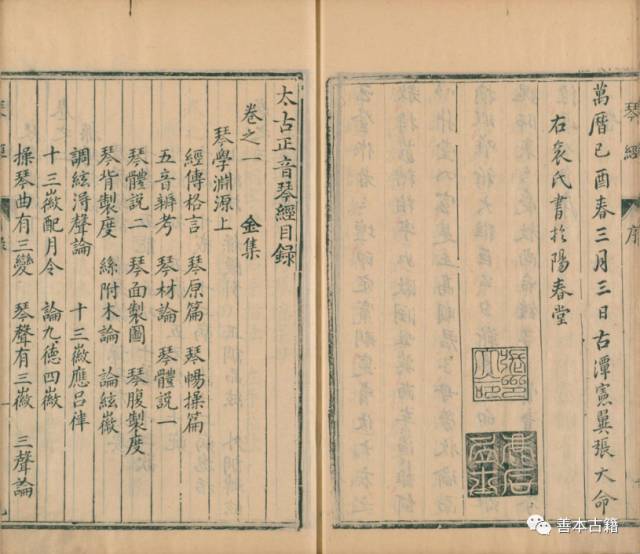 琴經 序
萬曆己酉春三月三日古潭憲翼張大命
右袞氏書於陽春堂
太古正音琴經目錄
卷之一 金集
琴學淵源上
經傳格言 琴原篇 琴暢操篇
五音辨考 琴材論 琴體說一
琴體說二 琴面製圖 琴腹製度
琴背製度 絲附木論 論絃徽
調絃淂聲論 十三徽應呂律
十三徽配月令 論九德四徽
操琴曲有三變 琴聲有三徽 三聲論
善本古籍